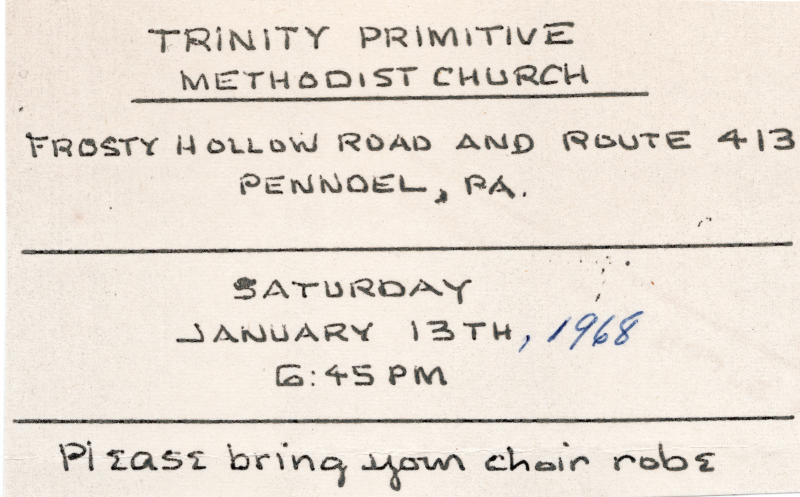 TRINITY PRIMITIVE
METHODIST CHURCH
FROSTY HOLLOW ROAD AND ROUTE 413
PENNDEL, PA.
SATURDAY
JANUARY 13TH, 1968
6:45 PM
Please bring your choir robe